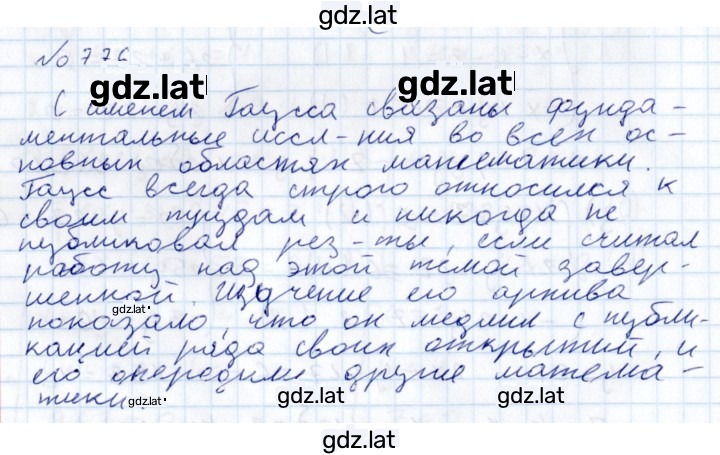 gdz.lat
№ 776
gdz.lat gdz.lat
С именем Гаусса связаны фунда-
ментальные иссл-ния во всех ос-
новных областях математики.
Гаусс всегда строго относился к
своим трудам и никогда не
публиковал рез-ты, если считал
работу над этой темой завер-
шенной. Изучение его архива
gdz.lat gdz.lat
показало, что он медлил с публи-
кацией ряда своих открытий, и
его опередили другие матема-
тики.
gdz.lat gdz.lat gdz.lat
gdz.lat